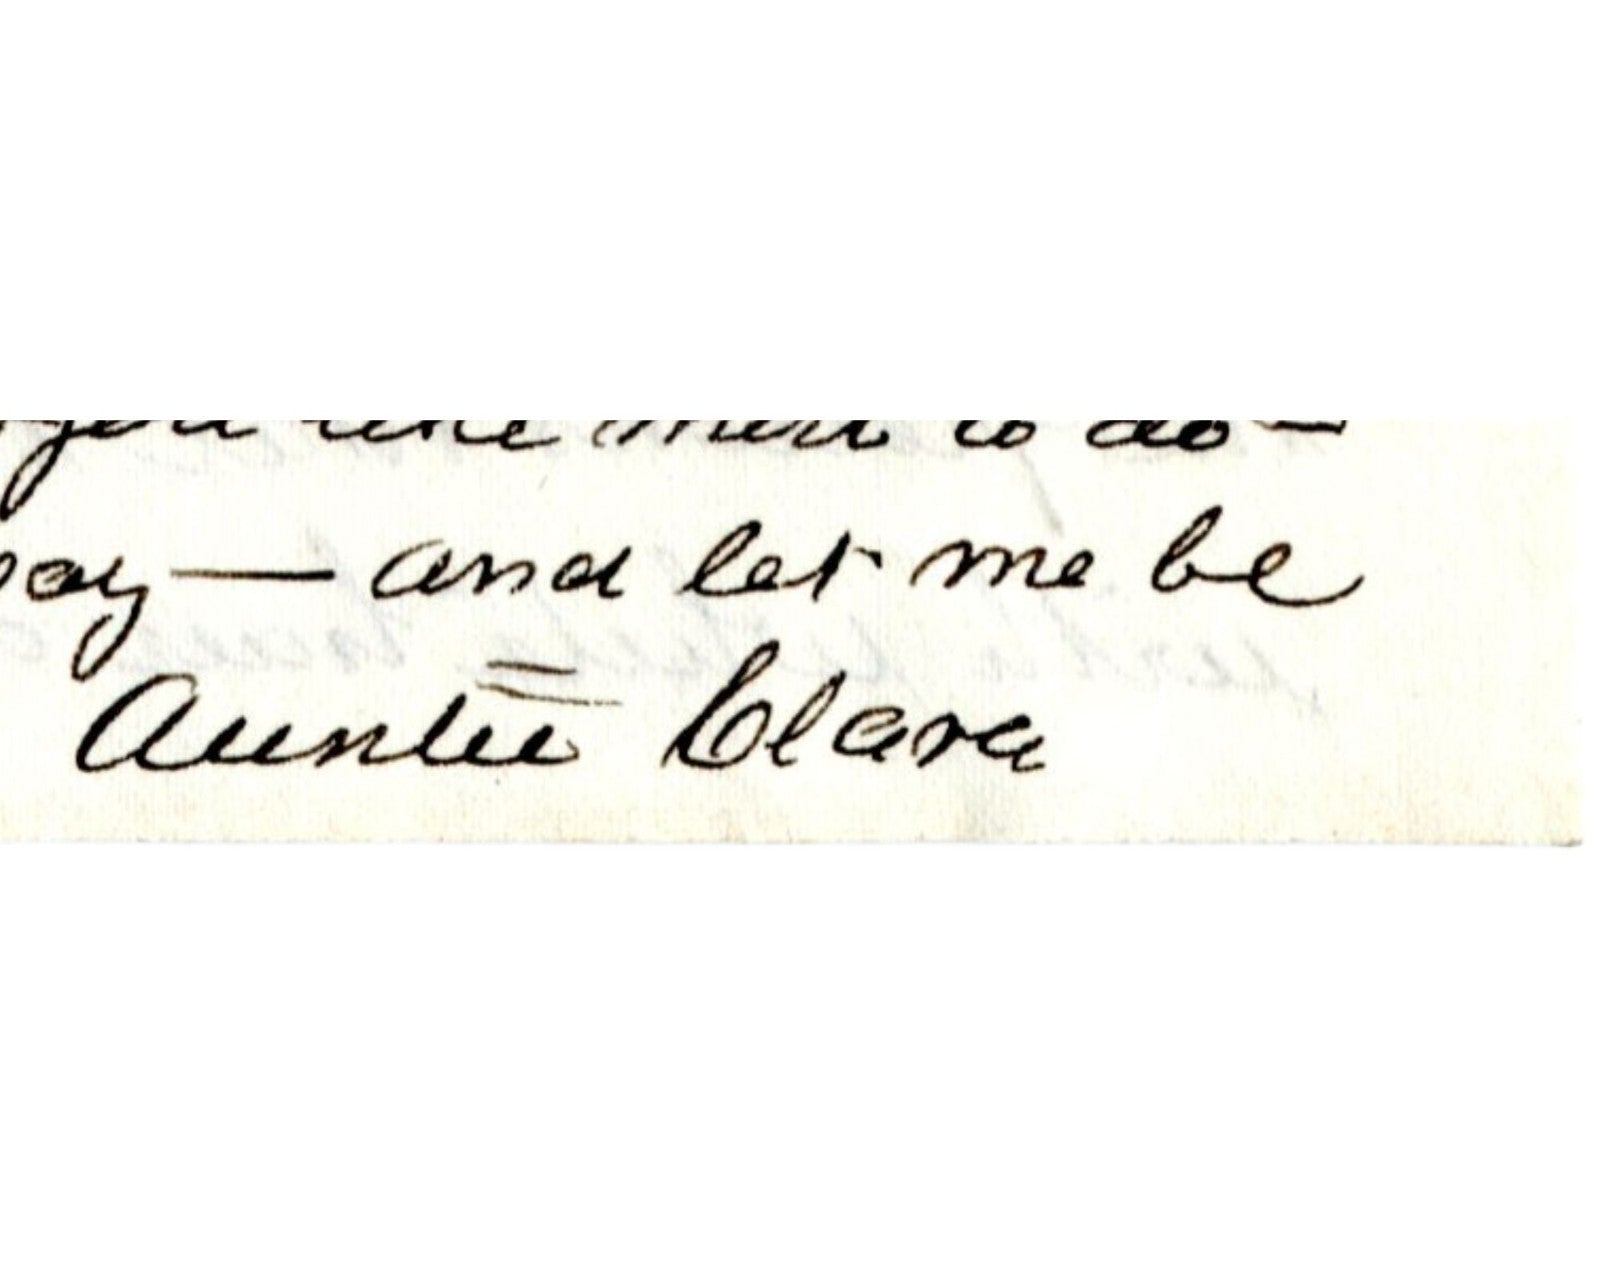 you like men to do —
— and let me be
Auntie Clara